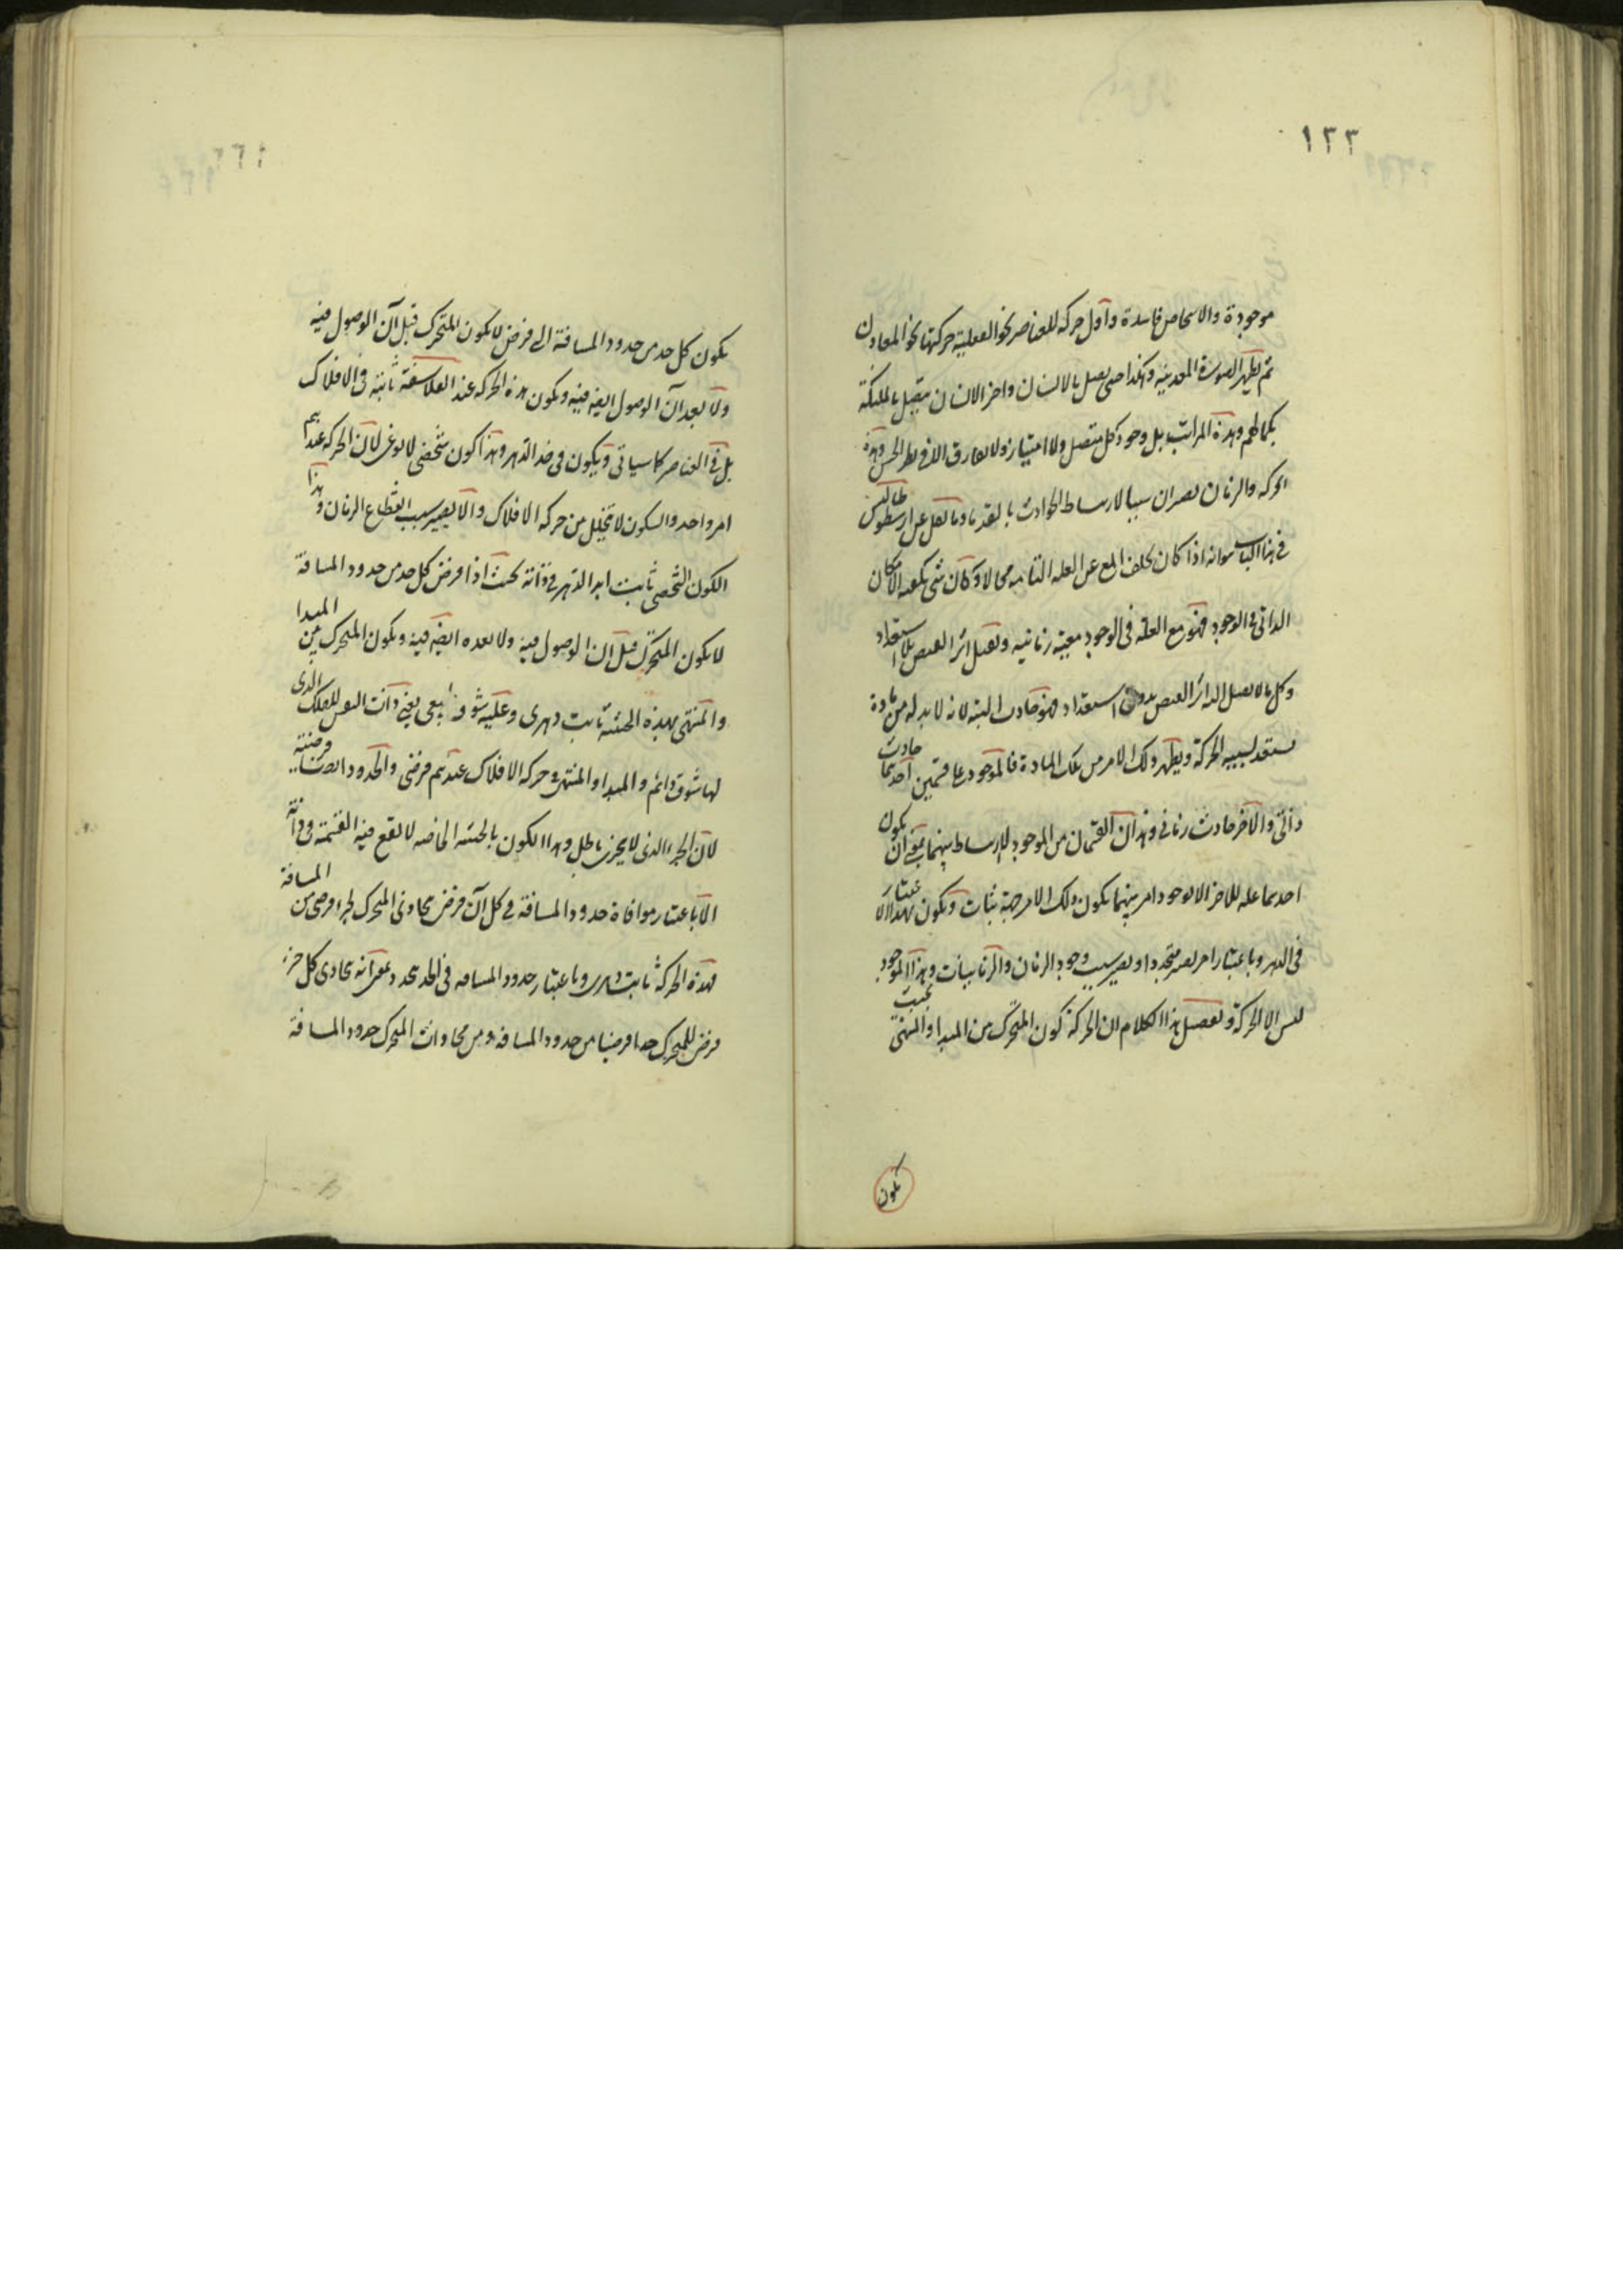 ١٢٢
موجودة والاشخاص فاسدة واول حركه للعناصر نحو الفعلية حركتها نحو المعادن
ثم يظهر الصورة المعدنيه وهكذا حتى يصل بالانسان واخر الانسان يتصل بالملئكة
بكمالهم وهذة المراتب بل وجود كل متصل ولا امتياز ولا تفارق الا فى نظر الحس وهذه
الحركه والزمان يصيران سببا لارتباط الحوادث بالقدما وما نقل عن ارسطوطاليس
فى هذا الباب هو انه اذا كان تخلف المع عن العله التامه محالا وكان شى يكفيه الامكان
الذاتى فى الوجود فهو مع العلة فى الوجود معيته زمانيه ويقبل اثر الفيض بلا استعداد
وكل ما لا يقبل الذات اثر الفيض بدون استعداد فهو حادث البته لانه لا بد له من مادة
مستعد بسببه الحركة ويظهر ذلك الامر من تلك المادة فالموجود على قسمين احدهما حادث
ذاتى والاخر حادث زمانى وهذان القسمان من الموجود للارتباط بينهما ينبغى ان يكون
احدهما عله للاخر الا بوجود امر بينهما يكون ذلك الامر جهة ثبات ويكون بهذا الاعتبار
فى الدهر وباعتبار امر يصير متجددا ويصير سبب وجود الزمان والزمانيات وهذا الموجود
ليس الا الحركة وتفصيل هذا الكلام ان الحركة كون المتحرك من المبدا والمنتهى بحيث
يكون
يكون كل حد من حدود المسافة الى فرض لا يكون المتحرك قبل آن الوصول فيه
ولا بعد آن الوصول ايضه فيه ويكون هذه الحركه عند الفلاسفة ثابته فى الافلاك
بل فى العناصر كما سياتى ويكون فى حد الدهر وهذا كون شخصى لا نوعى لان الحركه عندهم
امر واحد والسكون لا تخلل من حركه الافلاك والا يصير سبب انقطاع الزمان وهذا
الكون الشخصى ثابت ابد الدهر فى ذاته بحيث اذا فرض كل حد من حدود المسافة
لا يكون المتحرك قبل آن الوصول فيه ولا بعده ايضه فيه ويكون المتحرك بين المبدا
والمنتهى بهذه الحيثيه ثابت دهرى وعليه شوق نفس يعنى ذات النفس للفلك الذى
لها شوق دائم والمبدا والمنتهى فى حركه الافلاك عندهم فرضى والحدود ايضا فرضية
لان الجزء الذى لا يتجزى باطل وهذا الكون بالحيثيه الخاصه لا يقع فيه القسمة فى ذاته
الا باعتبار موافاة حدود المسافة فى كل آن فرض محاذى المتحرك لجزء فرضى من المسافة
فهذه الحركة ثابت دهرى وباعتبار حدود المسافه فى الحد يتجدد بمعنى انه يحاذى كل جزء
فرض للمتحرك حدا فرضيا من حدود المسافه ومن محاذات المتحرك حدود المسافة